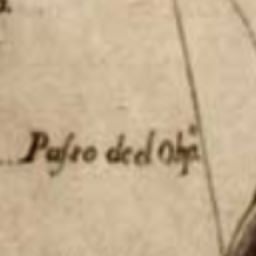 Paſeo de el Obpº.